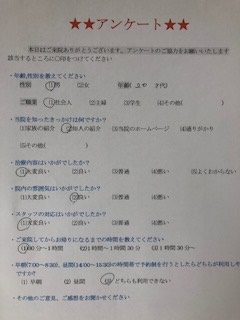 ★★アンケート★★
本日はご来院ありがとうございます。アンケートのご協力をお願いいたします
該当するところに〇印をつけてください
・年齢,性別を教えてください
性別 (1)男 (2)女 年齢( )才
ご職業 (1)社会人 (2)主婦 (3)学生 (4)その他( )
・当院を知ったきっかけは何ですか?
(1)家族の紹介 (2)知人の紹介 (3)当院のホームページ (4)通りがかり
(5)その他( )
・治療内容はいかがでしたか?
(1)大変良い (2)良い (3)普通 (4)悪い (5)よくわからない
・院内の雰囲気はいかがでしたか?
(1)大変良い (2)良い (3)普通 (4)悪い
・スタッフの対応はいかがでしたか?
(1)大変良い (2)良い (3)普通 (4)悪い
・ご来院してからお帰りになるまでの時間を教えてください
(1)30分~1時間 (2)1時間~1時間30分 (3)1時間30分~
・早朝(7:00~8:30)、昼間(14:00~15:30)の時間帯で予約制を行うとしたらどちらが利用しや
すですか?
(1)早朝 (2)昼間 (3)どちらも利用できない
・その他のご意見、ご感想をお聞かせください